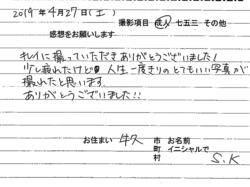 2019年4月27日(土)
撮影項目 成人 七五三 その他
感想をお願いします
キレイに撮っていただきありがとうございました!
少し疲れたけど 人生一度きりのとてもいい写真が
撮れたと思います。
ありがとうございました!!
お住まい
市 お名前
町 イニシャルで
村 S.K